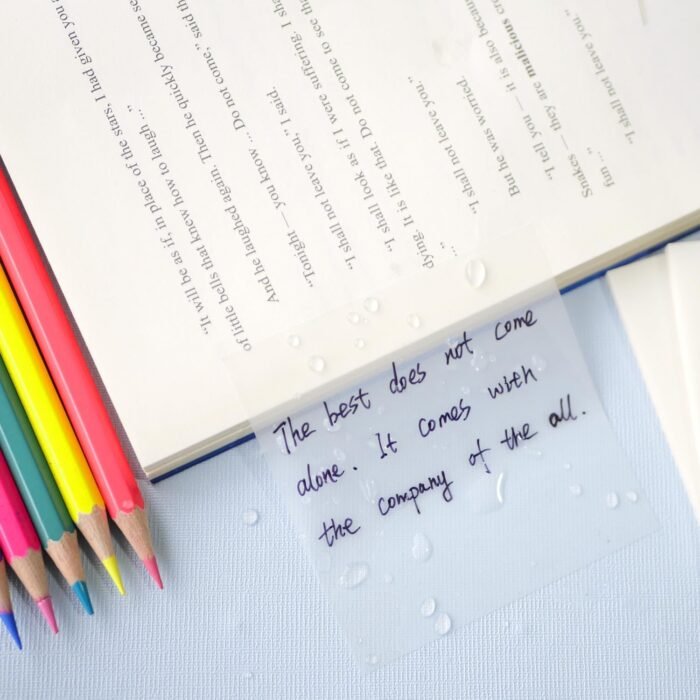 "It will be as if, in place of the stars, I had given you a
of little bells that knew how to laugh ..."
And he laughed again. Then he quickly became se
"Tonight — you know ... Do not come," said th
"I shall not leave you," I said.
"I shall look as if I were suffering. I sha
dying. It is like that. Do not come to see the
..."
"I shall not leave you."
But he was worried.
"I tell you — it is also becau
Snakes — they are malicious cr
fun ..."
"I shall not leave you."
The best does not come
alone. It comes with
the company of the all.